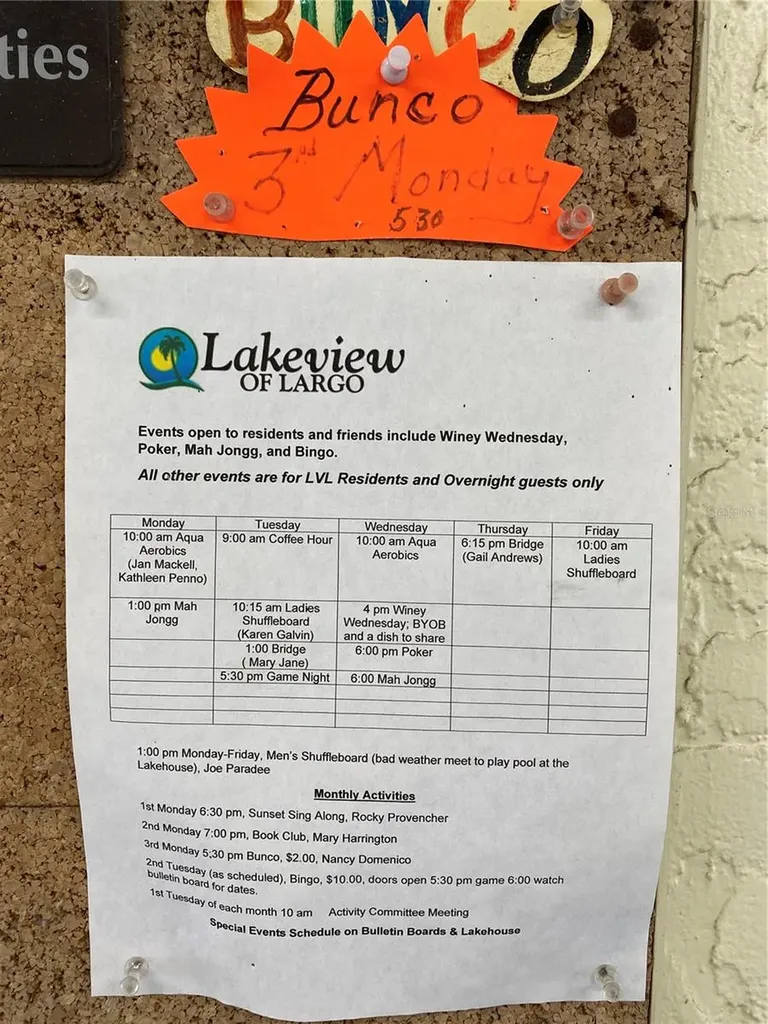 ties
BUNCO
Bunco
3rd Monday
530
Lakeview
OF LARGO
Events open to residents and friends include Winey Wednesday,
Poker, Mah Jongg, and Bingo.
All other events are for LVL Residents and Overnight guests only
Monday Tuesday Wednesday Thursday Friday
10:00 am Aqua Aerobics (Jan Mackell, Kathleen Penno) 9:00 am Coffee Hour 10:00 am Aqua Aerobics 6:15 pm Bridge (Gail Andrews) 10:00 am Ladies Shuffleboard
1:00 pm Mah Jongg 10:15 am Ladies Shuffleboard (Karen Galvin) 4 pm Winey Wednesday; BYOB and a dish to share
1:00 Bridge ( Mary Jane) 6:00 pm Poker
5:30 pm Game Night 6:00 Mah Jongg
1:00 pm Monday-Friday, Men's Shuffleboard (bad weather meet to play pool at the
Lakehouse), Joe Paradee
Monthly Activities
1st Monday 6:30 pm, Sunset Sing Along, Rocky Provencher
2nd Monday 7:00 pm, Book Club, Mary Harrington
3rd Monday 5:30 pm Bunco, $2.00, Nancy Domenico
2nd Tuesday (as scheduled), Bingo, $10.00, doors open 5:30 pm game 6:00 watch
bulletin board for dates.
1st Tuesday of each month 10 am Activity Committee Meeting
Special Events Schedule on Bulletin Boards & Lakehouse